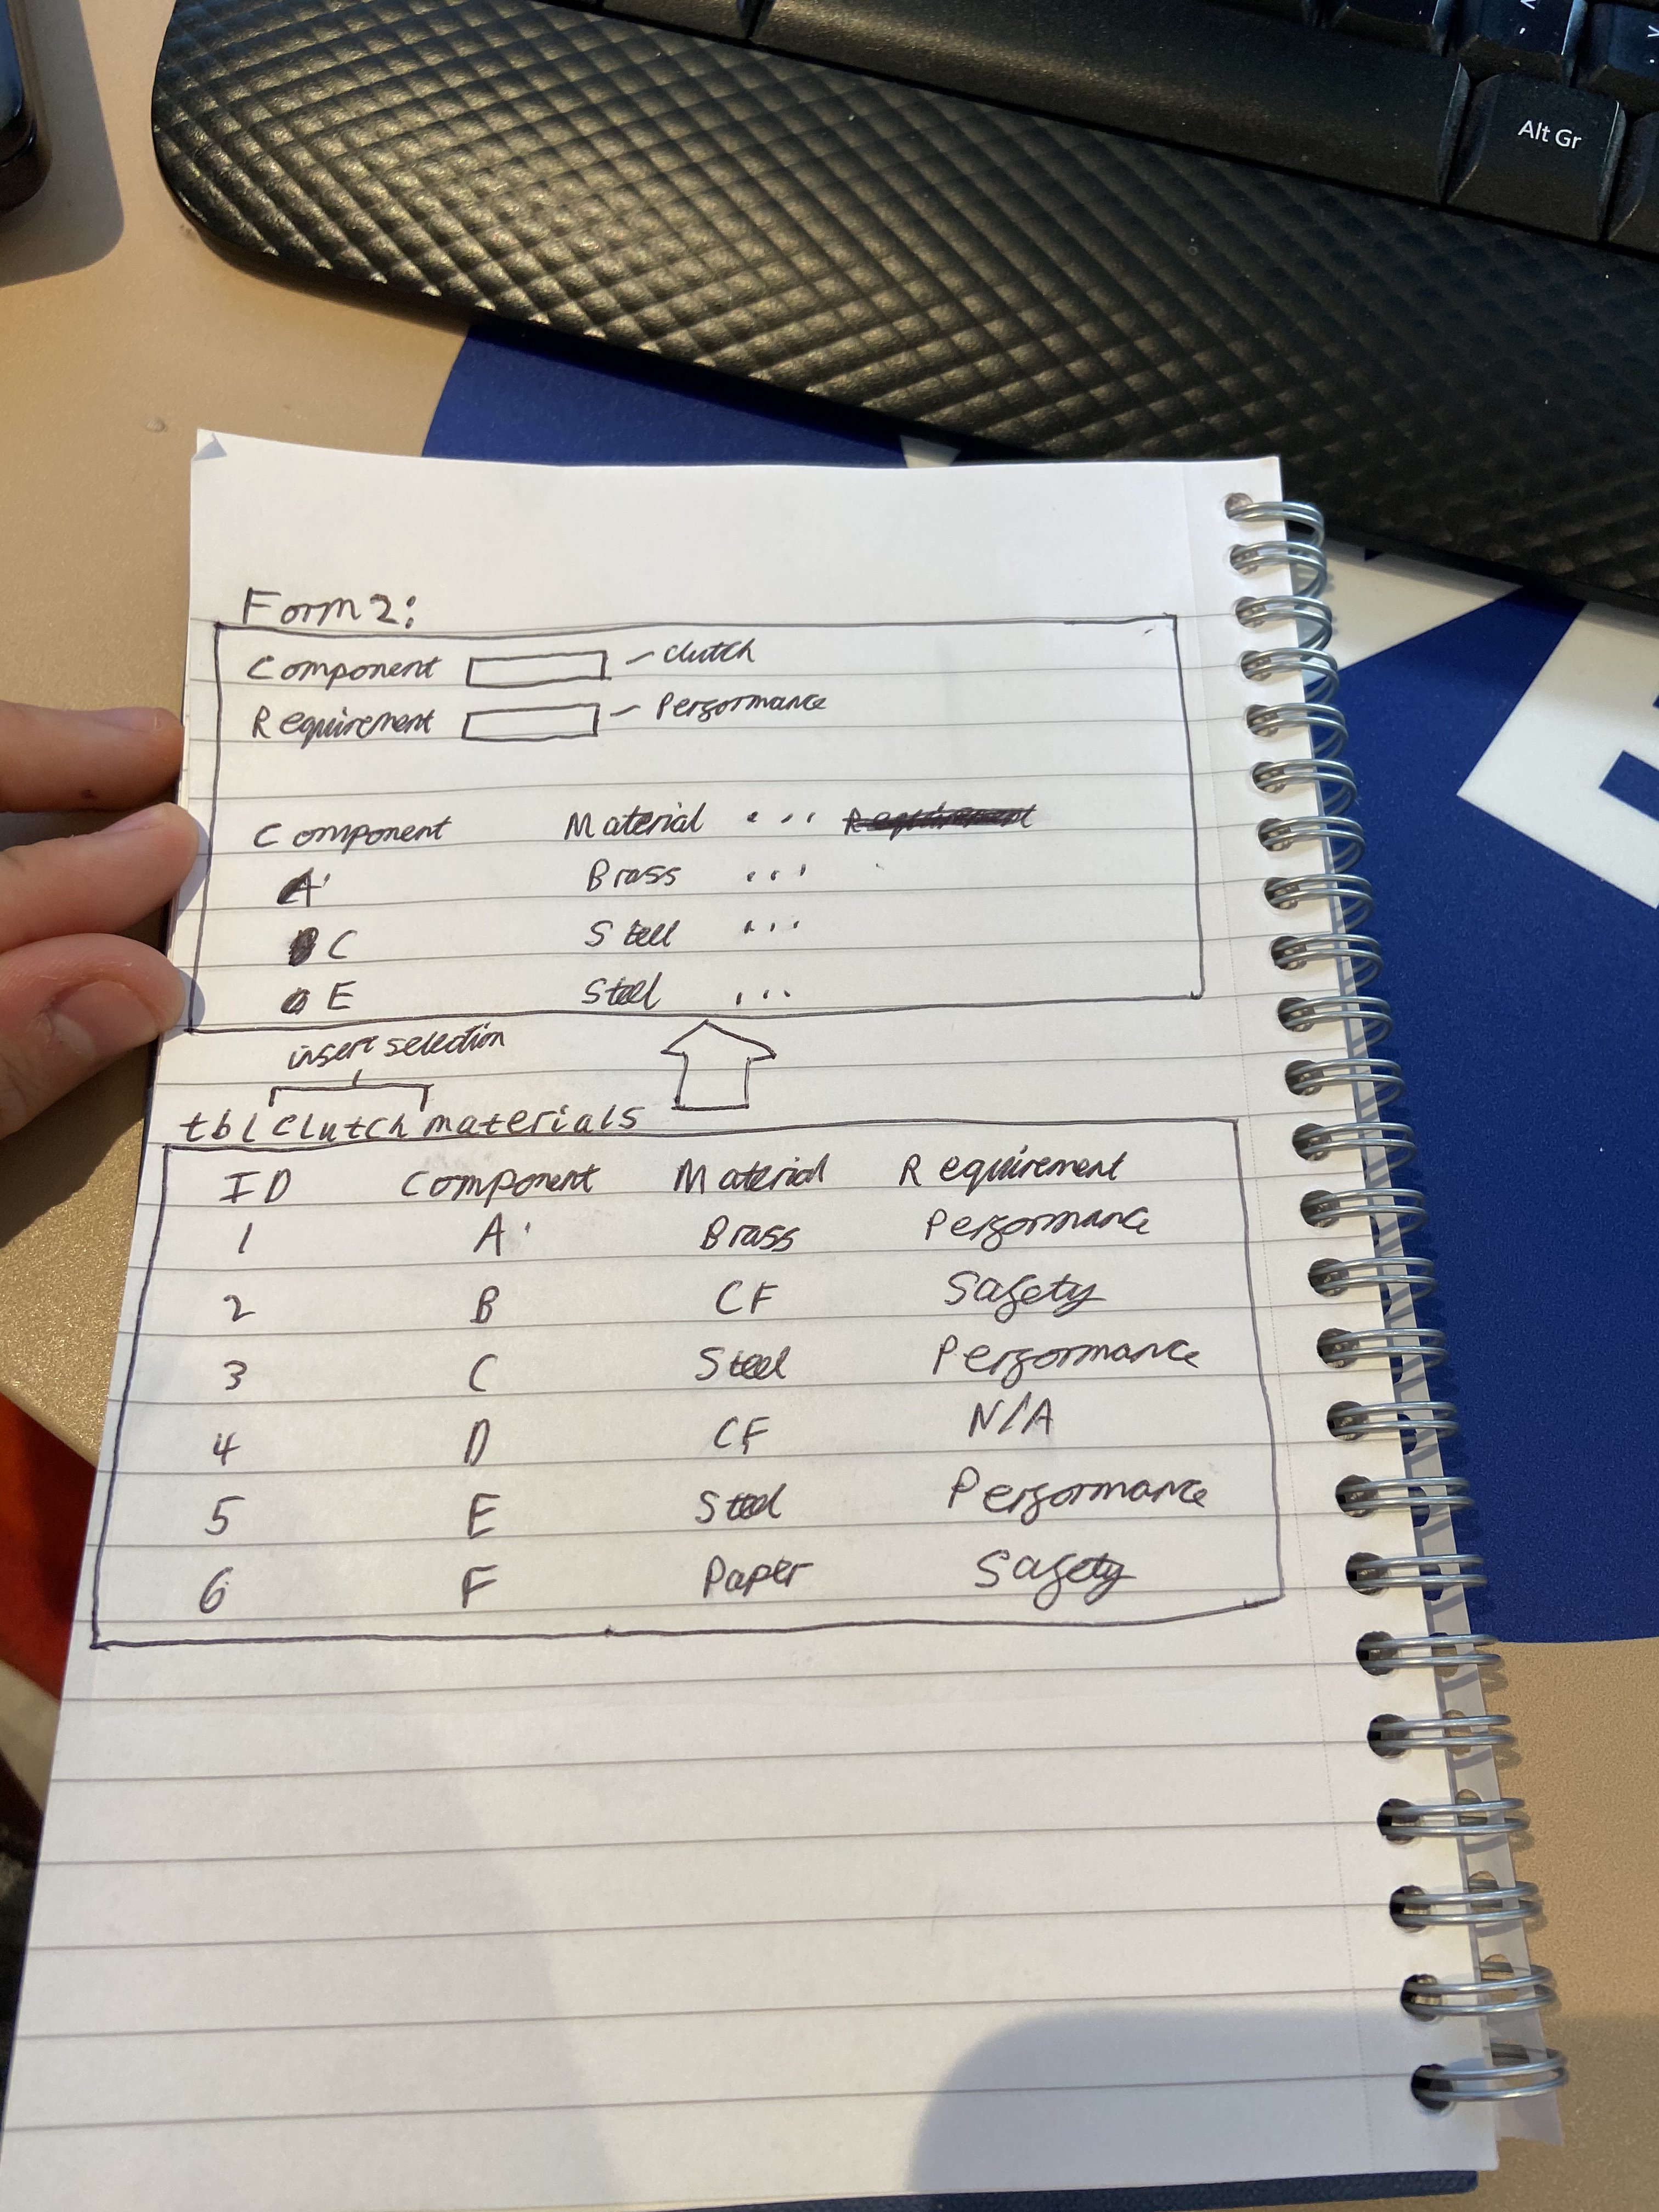 Alt Gr
Form 2:
Component - clutch
Requirement - Performance
Component Material ... Requirement
A Brass ...
C Steel ...
E Steel ...
insert selection
tblclutchmaterials
ID Component Material Requirement
1 A Brass Performance
2 B CF Safety
3 C Steel Performance
4 D CF N/A
5 E Steel Performance
6 F Paper Safety